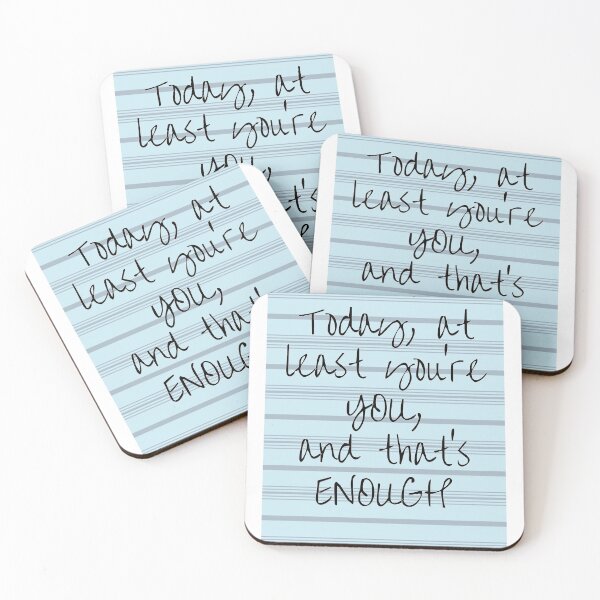 Today, at
least you're
you,
Today, at
least you're
you,
and that's
Today, at
least you're
you,
and that'
ENOUG
Today, at
least you're
you,
and that's
ENOUGH